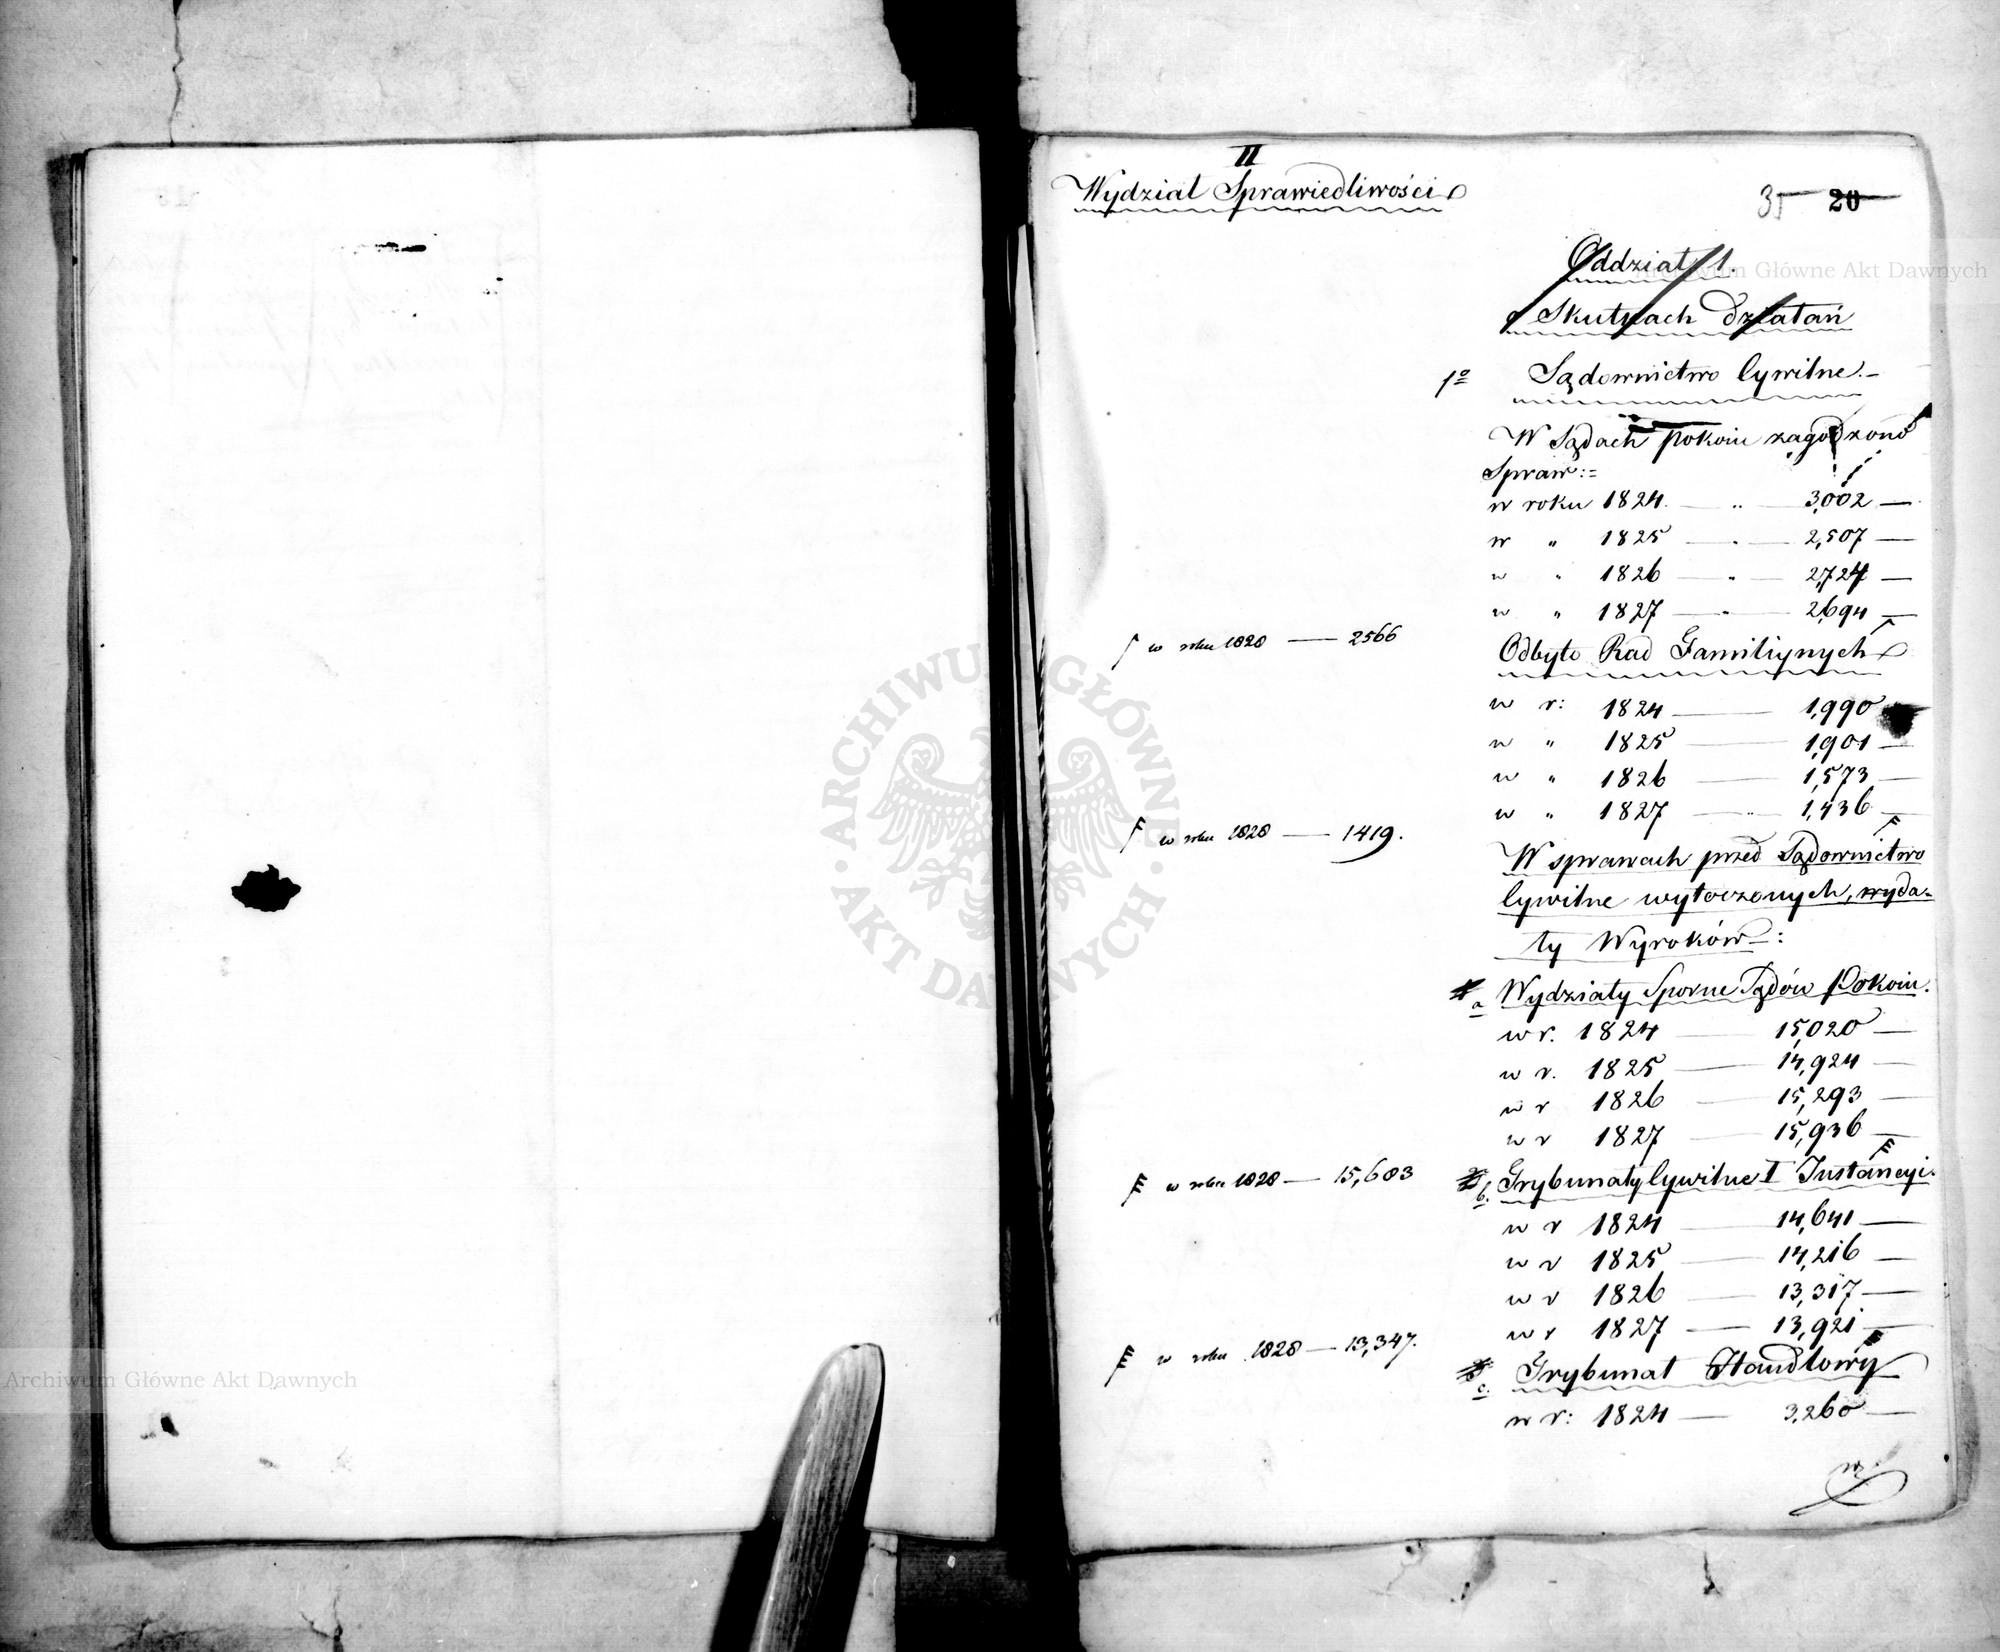 II
Wydział Sprawiedliwości
35 20
Oddział 1.
o Skutkach Działań
1o Sądownictwo Cywilne.
W Sądach pokoiu zagodzono
Spraw:
w roku 1824. 3,002
w " 1825 2,507
w " 1826 2,724
w " 1827 2,694
w roku 1828 — 2566
Odbyto Rad Familiynych
w r: 1824 1,990
w " 1825 1,901
w " 1826 1,573
w " 1827 1,436
w roku 1828 — 1419.
W sprawach przed Sądownictwo
Cywilne wytoczonych, wyda-
ły Wyroków:
a Wydziały Sporne Sądów Pokoiu.
w r. 1824 15,020
w r. 1825 14,924
w r 1826 15,293
w r 1827 15,936
w roku 1828 — 15,683
b. Trybunały Cywilne I Instancyi.
w r 1824 14,641
w r 1825 14,216
w r 1826 13,317
w r 1827 13,921
w roku 1828 — 13,347.
c. Trybunał Handlowy
w r: 1824 3,260
Archiwum Główne Akt Dawnych
ARCHIWUM GŁÓWNE AKT DAWNYCH
Archiwum Główne Akt Dawnych